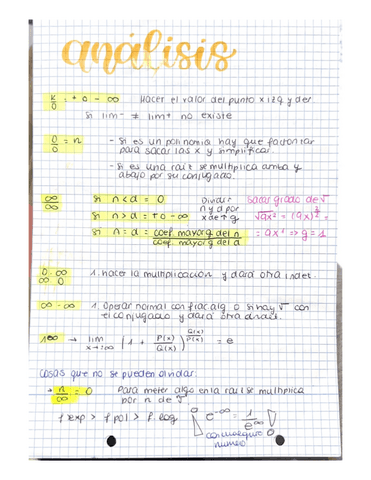 análisis
K/0 = + o - ∞ Hacer el valor del punto x izq y der
si lim- ≠ lim+ no existe
0/0 = n - Si es un polinomio hay que factorizar
para sacar las x y simplificar.
- Si es una raiz se multiplica arriba y
abajo por su conjugado.
∞/∞ si n<d = 0 Dividir sacar grado de √
si n>d = +o-∞ n y d por √ax² = (ax)^(2/2) =
x de + g
si n=d = coef. mayor g del n / coef. mayor g del d = ax¹ ⇒ g=1
0·∞ 1. hacer la multiplicación y dará otra indet.
∞ 0
∞-∞ 1. Operar normal con frac alg o si hay √ con
el conjugado y dará otra
1^∞ → lim x→+∞ (1 + P(x)/Q(x))^(Q(x)/P(x)) = e
cosas que no se pueden olvidar:
+ n/∞ = 0 Para meter algo en la raiz se multiplica
por n de √
f exp > f pol > f. log ¡ e^-∞ = 1/e^∞ ! 0
0 numero